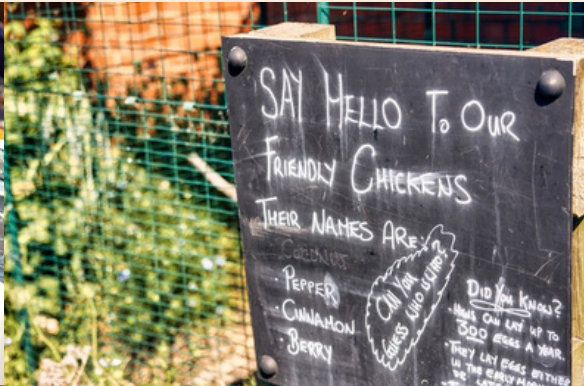 SAY HELLO TO OUR
FRIENDLY CHICKENS
THEIR NAMES ARE:
· PEPPER
· CINNAMON
· BERRY
CAN YOU
GUESS WHO IS WHO?
DID YOU KNOW?
· HENS CAN LAY UP TO
300 EGGS A YEAR.
· THEY LAY EGGS EITHER
IN THE EARLY